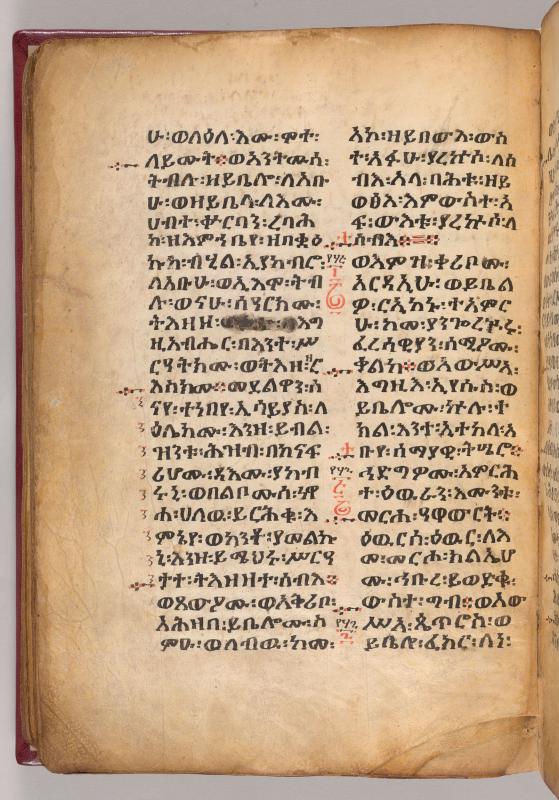 ሁ፡ወለዕለ፡እሙ፡ሞተ፡
ለይሙት፡ወአንትሙሰ፡
ትብሉ፡ዘይቤሎ፡ለአቡ
ሁ፡ወዘይቤላ፡ለእሙ፡
ሀብተ፡ቍርባን፡ረባሕ
ከ፡ዘእምኔየ፡ዘበቋዕ
ኩከ፡ብሂል፡ኢያከብሮ፡
ለአቡሁ፡ወኢእሞ፡ትብ
ሉ፡ወናሁ፡ሰዓርክሙ፡
ትእዛዘ፡ እግ
ዚአብሔር፡በእንተ፡ሥ
ርዓትክሙ፡ወትእዛዘ፡ር
እስክሙ፡መደልዋን፡ሠ
ናየ፡ተነበየ፡ኢሳይያስ፡ላ
ዕሌክሙ፡እንዘ፡ይብል፡
ዝንቱ፡ሕዝብ፡በከናፍ
ሪሆሙ፡ዳእሙ፡ያከብ
ሩኒ፡ወበልቦሙሰ፡ነዋ
ኀ፡ሀለዉ፡ይርሕቁ፡እ
ምኔየ፡ወከንቶ፡ያመልኩ
ኒ፡እንዘ፡ይሜህሩ፡ሥርዓ
ታተ፡ትእዛዛተ፡ሰብእ።
ወጸውዖሙ፡ወአቅሪቦ፡
አሕዛበ፡ይቤሎሙ፡ስ
ምዑ፡ወለብዉ፡ከመ፡
አኮ፡ዘይበውእ፡ውስ
ተ፡አፋሁ፡ያረኵሶ፡ለሰ
ብእ፡አላ፡ባሕቱ፡ዘይ
ወፅእ፡እምውስተ፡አ
ፍ፡ውእቱ፡ያረኵሶ፡ለ
ሰብእ።
ወእምዝ፡ቀሪቦሙ፡
አርዳኢሁ፡ወይቤል
ዎ፡ርኢከኑ፡ተአምር
ሁ፡ከመ፡ያንጐረጕሩ፡
ፈረሳዊያን፡ሰሚዖሙ፡
ቃልከ።ወአውሥአ፡
እግዚእ፡ኢየሱስ፡ወ
ይቤሎሙ፡ኵሉ፡ተ
ክል፡እንተ፡ኢተከላ፡አ
ቡየ፡ሰማያዊ፡ትሤሮ።
ኅድግዎሙ፡እምርሕ
ት፡ዕዉራን፡እሙንቱ፡
መርሐ፡ዓይወርት።
ዕዉርሰ፡ዕዉር፡ለእ
መ፡መርሐ፡ክልኤሆ
ሙ፡ኅቡረ፡ይወድቁ፡
ውስተ፡ግብ።ወአው
ሥአ፡ጴጥሮስ፡ወ
ይቤሎ፡ፈክር፡ለነ፡